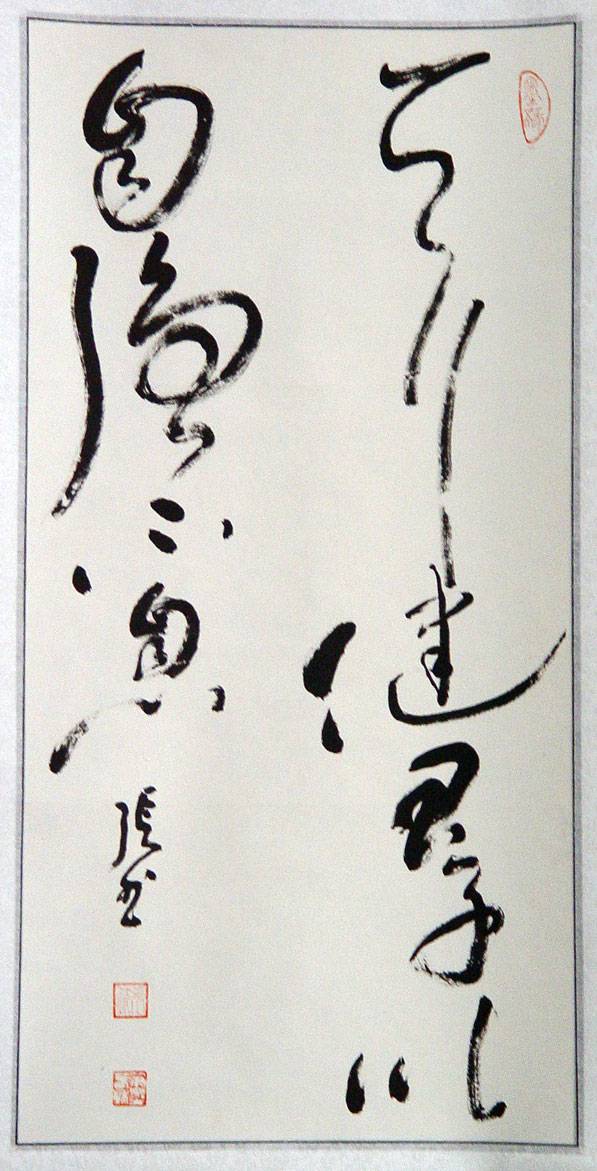 天行健君子以
自强不息
張书